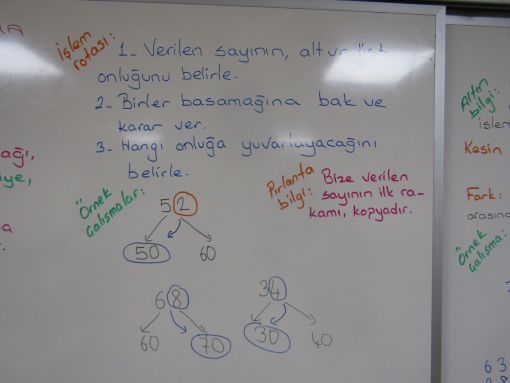 İşlem rotası:
1- Verilen sayının, alt ve üst
onluğunu belirle.
2- Birler basamağına bak ve
karar ver.
3- Hangi onluğa yuvarlayacağını
belirle.
Örnek çalışmalar:
Pırlanta bilgi:
Bize verilen
sayının ilk ra-
kamı, kopyadır.
52
50 60
68
60 70
34
30 40
Altın bilgi:
işlem
Kesin
Fark:
arasına
Örnek çalışma:
6 3